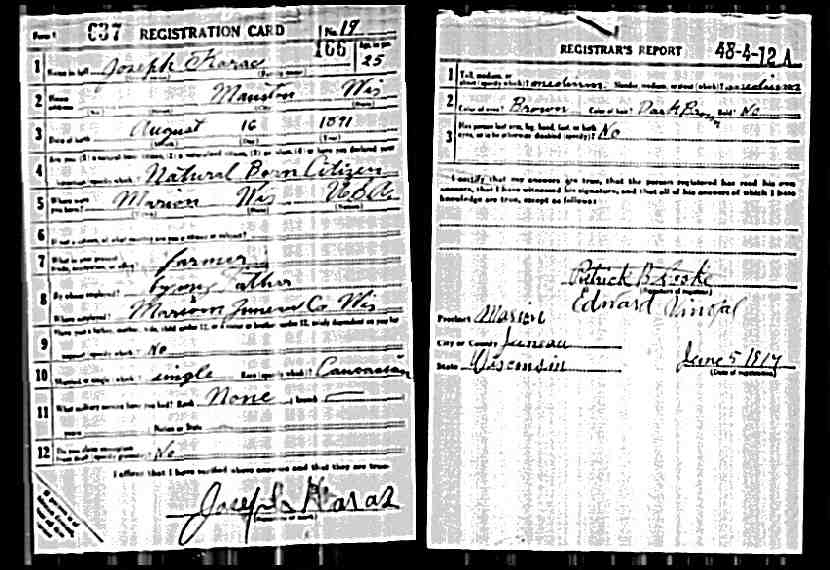 Form 1 637 REGISTRATION CARD No. 19
166 Age, in yrs. 25
1 Name in full Joseph Karac
2 Home address Mauston Wis
3 Date of birth August 16 1891
4 Are you (1) a natural born citizen, (2) a naturalized citizen, (3) an alien, (4) or have you declared your
intention (specify which)? Natural Born Citizen
5 Where were you born? Marion Wis USA
6 If not a citizen, of what country are you a citizen or subject?
7 What is your present trade, occupation, or office? farmer
8 By whom employed? by my Father
Where employed? Marion Juneau Co Wis
9 Have you a father, mother, wife, child under 12, or a sister or brother under 12, solely dependent on you for
support (specify which)? No
10 Married or single (which)? single Race (specify which)? Caucasian
11 What military service have you had? Rank None branch
years Nation or State
12 Do you claim exemption from draft (specify grounds)? No
I affirm that I have verified above answers and that they are true.
Joseph Karas
REGISTRAR'S REPORT 48-4-12 A
1 Tall, medium, or short (specify which)? medium Slender, medium, or stout (which)? medium
2 Color of eyes? Brown Color of hair? Dark Brown Bald? No
3 Has person lost arm, leg, hand, foot, or both eyes, or is he otherwise disabled (specify)? No
I certify that my answers are true, that the person registered has read his own
answers, that I have witnessed his signature, and that all of his answers of which I have
knowledge are true, except as follows:
Patrick B
(Signature of registrar)
Edward
Precinct Marion
City or County Juneau
State Wisconsin June 5 1917
(Date of registration)